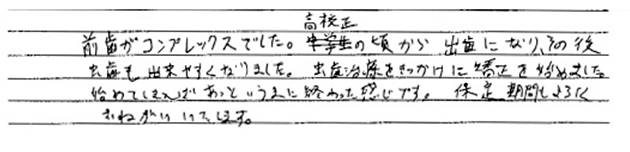 高校生
前歯がコンプレックスでした。の頃から出歯になり、その後
虫歯も出来やすくなりました。虫歯治療をきっかけに矯正を始めました。
始めてしまえばあっというまに終わった感じです。保定期間もよろしく
おねがいいたします。